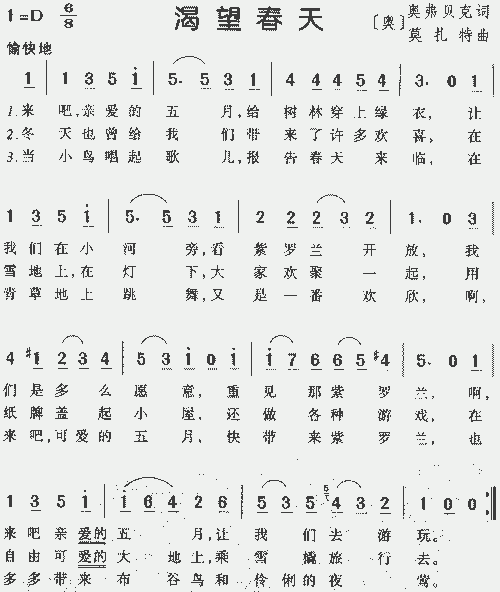 1=D 6/8
渴望春天
〔奥〕奥弗贝克词
莫扎特曲
愉快地
1 | 1 3 5 i | 5. 5 3 1 | 4 4 5 4 | 3. 0 1
1.来 吧,亲爱的 五 月,给 树林穿上绿 衣, 让
2.冬 天也曾给 我 们带 来了许多欢 喜, 在
3.当 小鸟唱起 歌 儿,报 告春天 来 临, 在
1 3 5 i | 5. 5 3 1 | 2 2 2 3 2 | 1. 0 3
我们在小 河 旁,看 紫罗兰 开 放, 我
雪地上,在 灯 下,大 家欢聚 一 起, 用
青草地上 跳 舞,又 是一番 欢 欣, 啊,
4 #1 2 3 4 | 5 3 i 0 i | i 7 6 6 6 5 #4 | 5. 0 1
们是多 么 愿 意, 重 见 那紫 罗 兰, 啊,
纸牌盖 起 小 屋, 还 做 各种 游 戏, 在
来吧,可爱的 五 月, 快 带 来紫 罗 兰, 也
1 3 5 i | i 6 4 2 6 | 5 3 5 4 3 2 | 1 0 0 :‖
来吧亲 爱的五 月,让 我 们去 游 玩。
自由可爱的大 地上,乘 雪 撬旅 行 去。
多多带来布 谷鸟和 伶 俐的夜 莺。